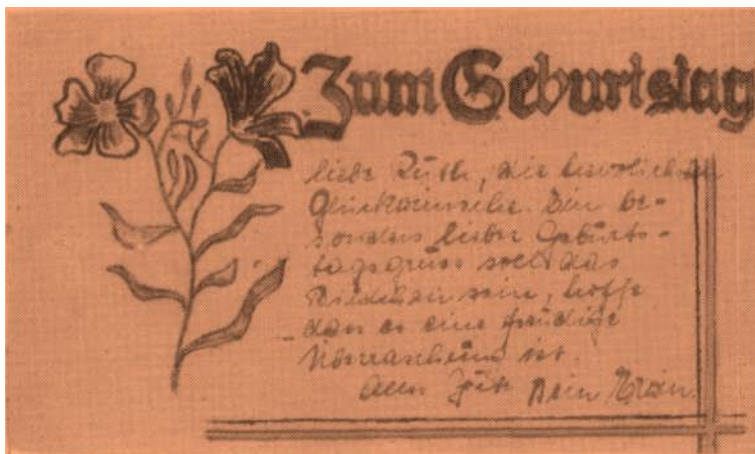 Zum Geburtstag
liebe Ruth, die herzlichsten
Glückwünsche. Ein be-
sonders lieber Geburts-
tagsgruss soll das
Bildchen sein, hoffe
dass es eine freudige
Überraschung ist.
Alles Gute Dein Erwin.